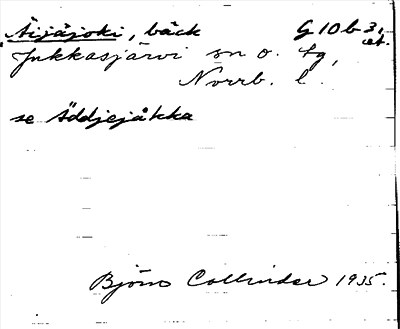 Äijäjoki, bäck G 10 b 3, et.
Jukkasjärvi sn o. tg,
Norrb. l.
se Äddjejåkka
Björn Collinder 1935.